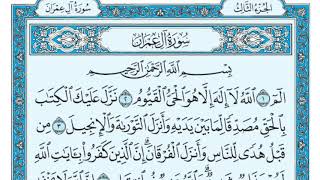 سُورَةُ آلِ عِمْرَانَ
الجُزْءُ الثَّالِثُ
سُورَةُ آلِ عِمْرَانَ
بِسْمِ اللَّهِ الرَّحْمَٰنِ الرَّحِيمِ
الٓمٓ ١ ٱللَّهُ لَآ إِلَٰهَ إِلَّا هُوَ ٱلْحَىُّ ٱلْقَيُّومُ ٢ نَزَّلَ عَلَيْكَ ٱلْكِتَٰبَ
بِٱلْحَقِّ مُصَدِّقًا لِّمَا بَيْنَ يَدَيْهِ وَأَنزَلَ ٱلتَّوْرَىٰةَ وَٱلْإِنجِيلَ ٣ مِن
قَبْلُ هُدًى لِّلنَّاسِ وَأَنزَلَ ٱلْفُرْقَانَ إِنَّ ٱلَّذِينَ كَفَرُوا۟ بِـَٔايَٰتِ ٱللَّهِ